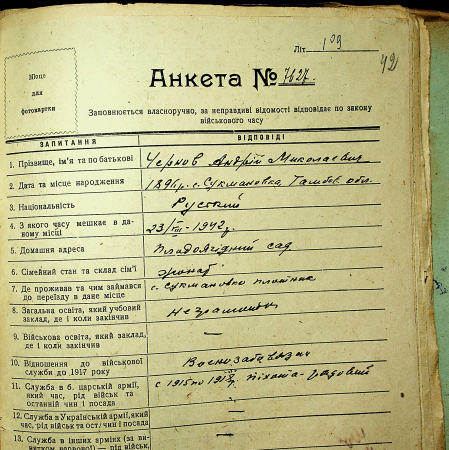 Літ. 109
42
Місце
для
фотокартки
Анкета № 7627.
Заповнюється власноручно, за неправдиві відомості відповідає по закону
військового часу
ЗАПИТАННЯ
ВІДПОВІДІ
1. Прізвище, ім'я та по батькові Чернов Андрій Миколаевич
2. Дата та місце народження 1896р. с. Сукмановка, Тамбов. обл.
3. Національність Русский
4. З якого часу мешкає в да-
ному місці 23/VIII-1942р
5. Домашня адреса Плодоягідний сад
6. Сімейний стан та склад сім'ї жонат
7. Де проживав та чим займався
до переїзду в дане місце с. Сукмановка плотник
8. Загальна освіта, який учбовий
заклад, де і коли закінчив
9. Військова освіта, який заклад,
де і коли закінчив —
10. Відношення до військової
служби до 1917 року
11. Служба в б. царській армії,
який час, рід військ та
останній чин і посада с 1915 по піхота-рядовий
12. Служба в Українській армії, який
час, рід військ та ост. чин і посада —
13. Служба в інших арміях (за ви-
нятком червоної) — рід військ,